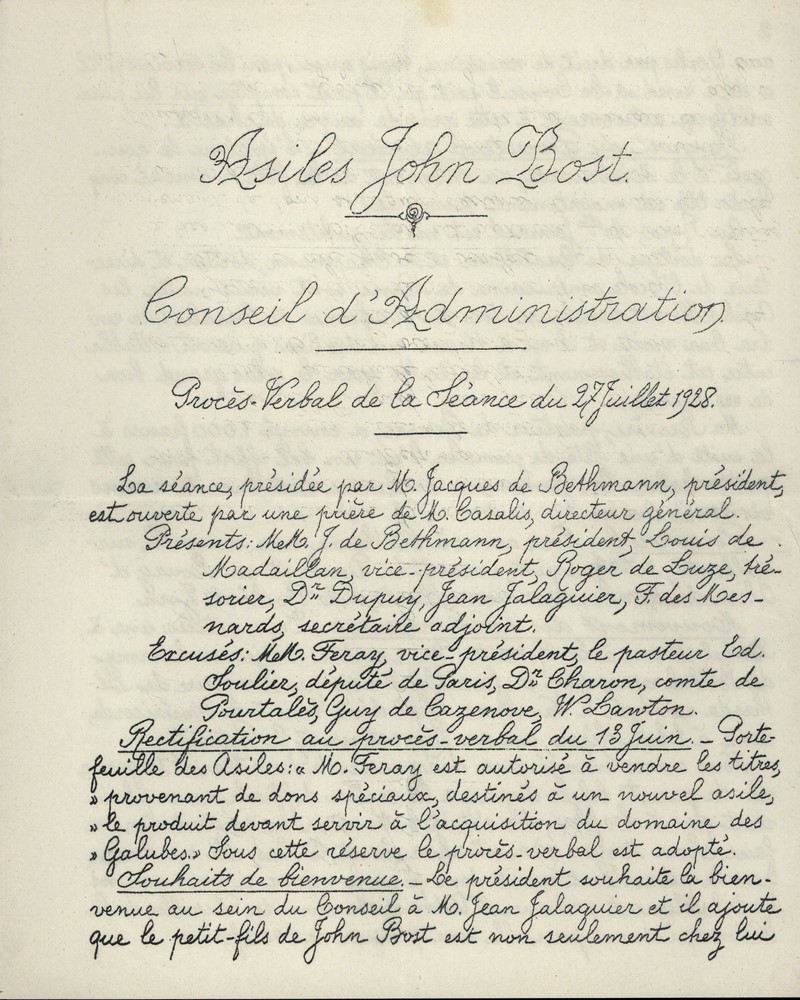 Asiles John Bost.
Conseil d'Administration
Procès-Verbal de la Séance du 27 Juillet 1928.
La séance, présidée par M. Jacques de Bethmann, président,
est ouverte par une prière de M. Casalis, directeur général.
Présents: MeM. J. de Bethmann, président, Louis de
Madaillan, vice-président, Roger de Luze, tré-
sorier, Dr Dupuy, Jean Jalaguier, F. des Mes-
nards, secrétaire adjoint.
Excusés: MeM. Feray, vice-président, le pasteur Ed.
Soulier, député de Paris, Dr Charon, comte de
Pourtalès, Guy de Cazenove, W. Lawton.
Rectification au procès-verbal du 13 Juin. - Porte-
feuille des Asiles: « M. Feray est autorisé à vendre les titres,
» provenant de dons spéciaux, destinés à un nouvel asile,
» le produit devant servir à l'acquisition du domaine des
» Galubes.» Sous cette réserve le procès-verbal est adopté.
Souhaits de bienvenue. - Le président souhaite la bien-
venue au sein du Conseil à M. Jean Jalaguier et il ajoute
que le petit-fils de John Bost est non seulement chez lui